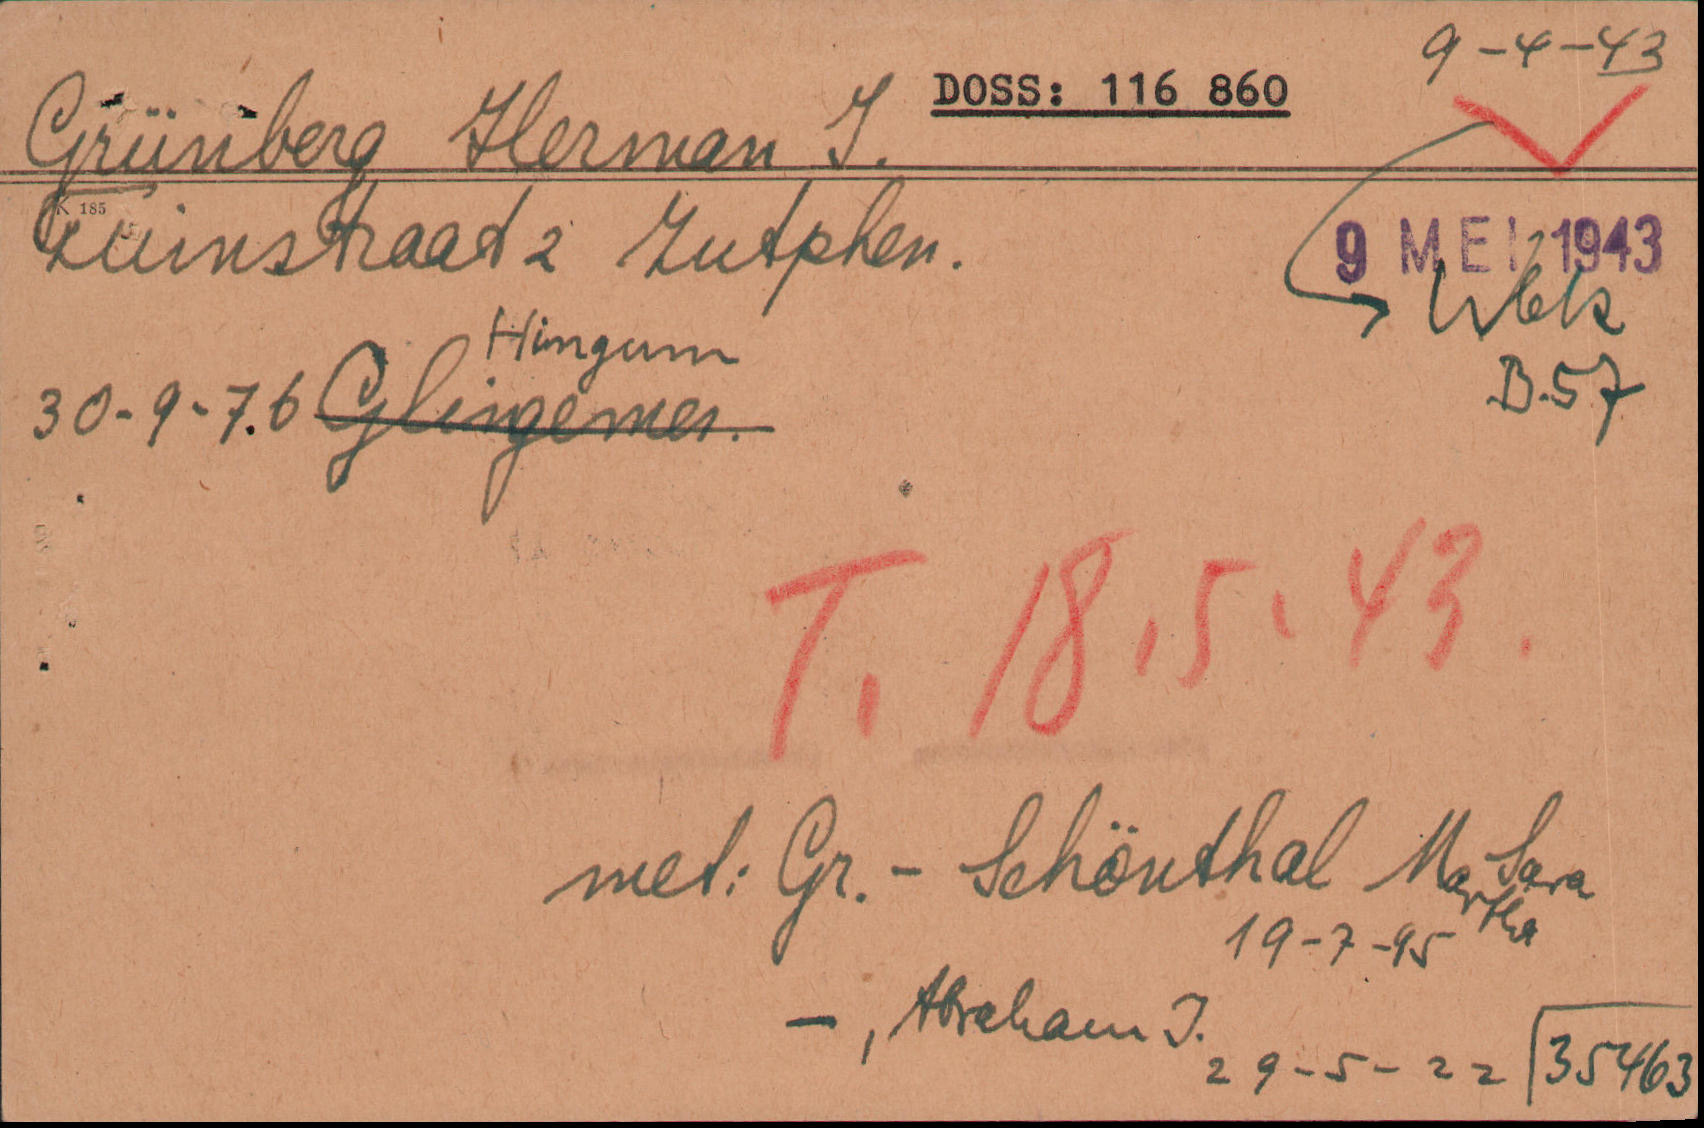 9-4-43
DOSS: 116 860
Grünberg Herman I.
K 185
Tuinstraat 2 Zutphen.
9 MEI 1943
Wbk
B.57
Hungum
30-9-76 Glingemer.
T. 18.5.43.
met: Gr. - Schönthal Martha Sara
19-7-95
-, Abraham I.
29-5-22
35463